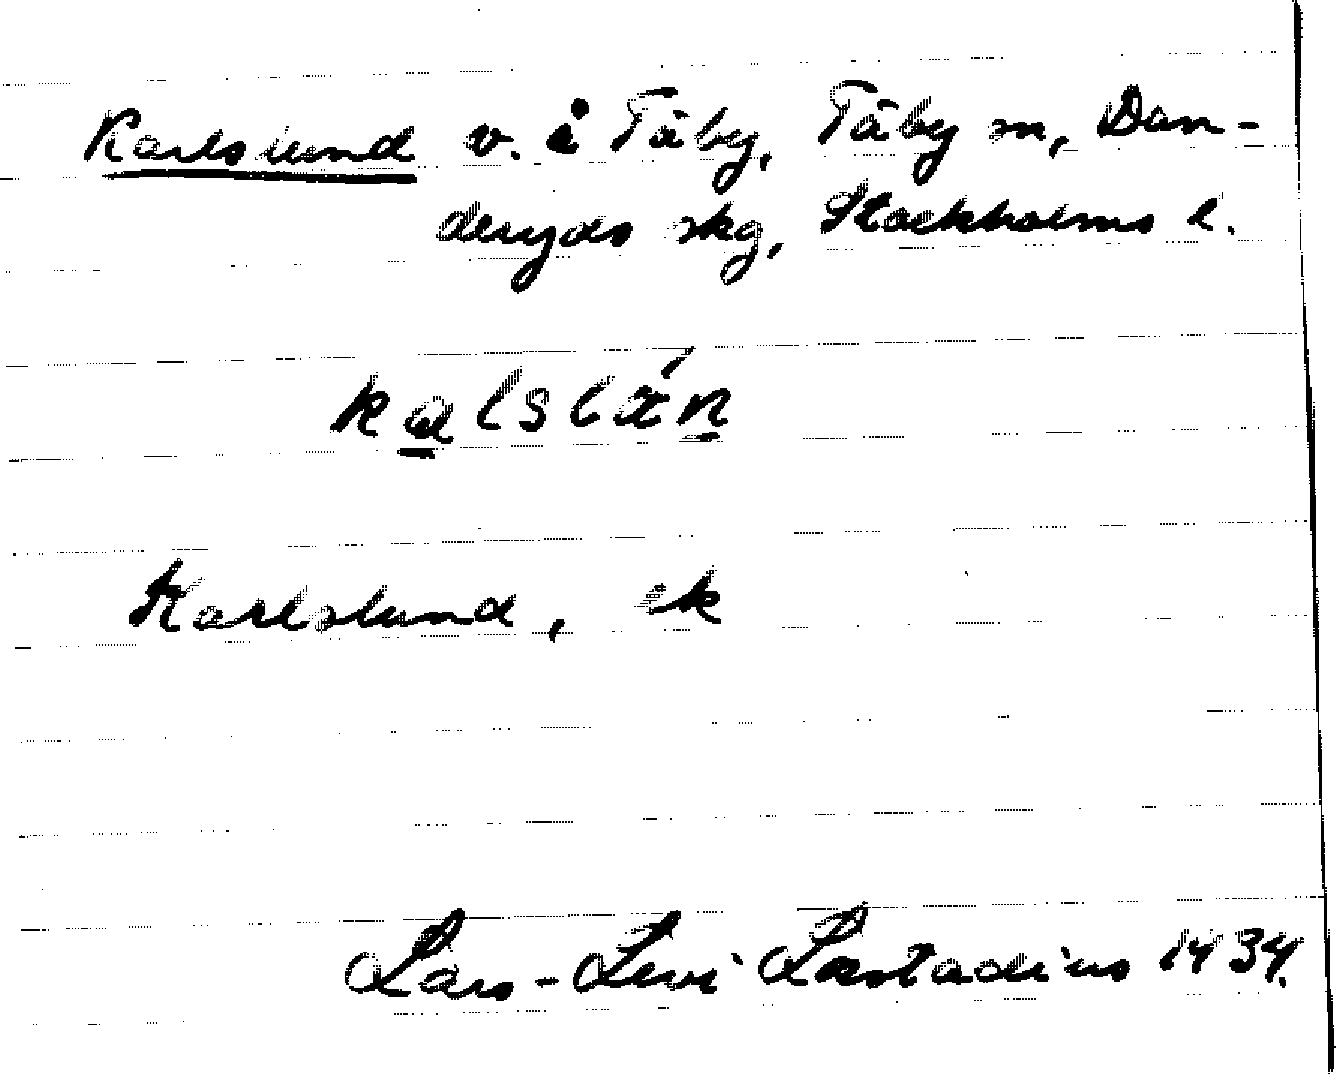 Karlslund v. å Täby, Täby sn, Dan-
deryds skg, Stockholms l.
Karlslund, ek
Lars-Levi Læstadius 1934.